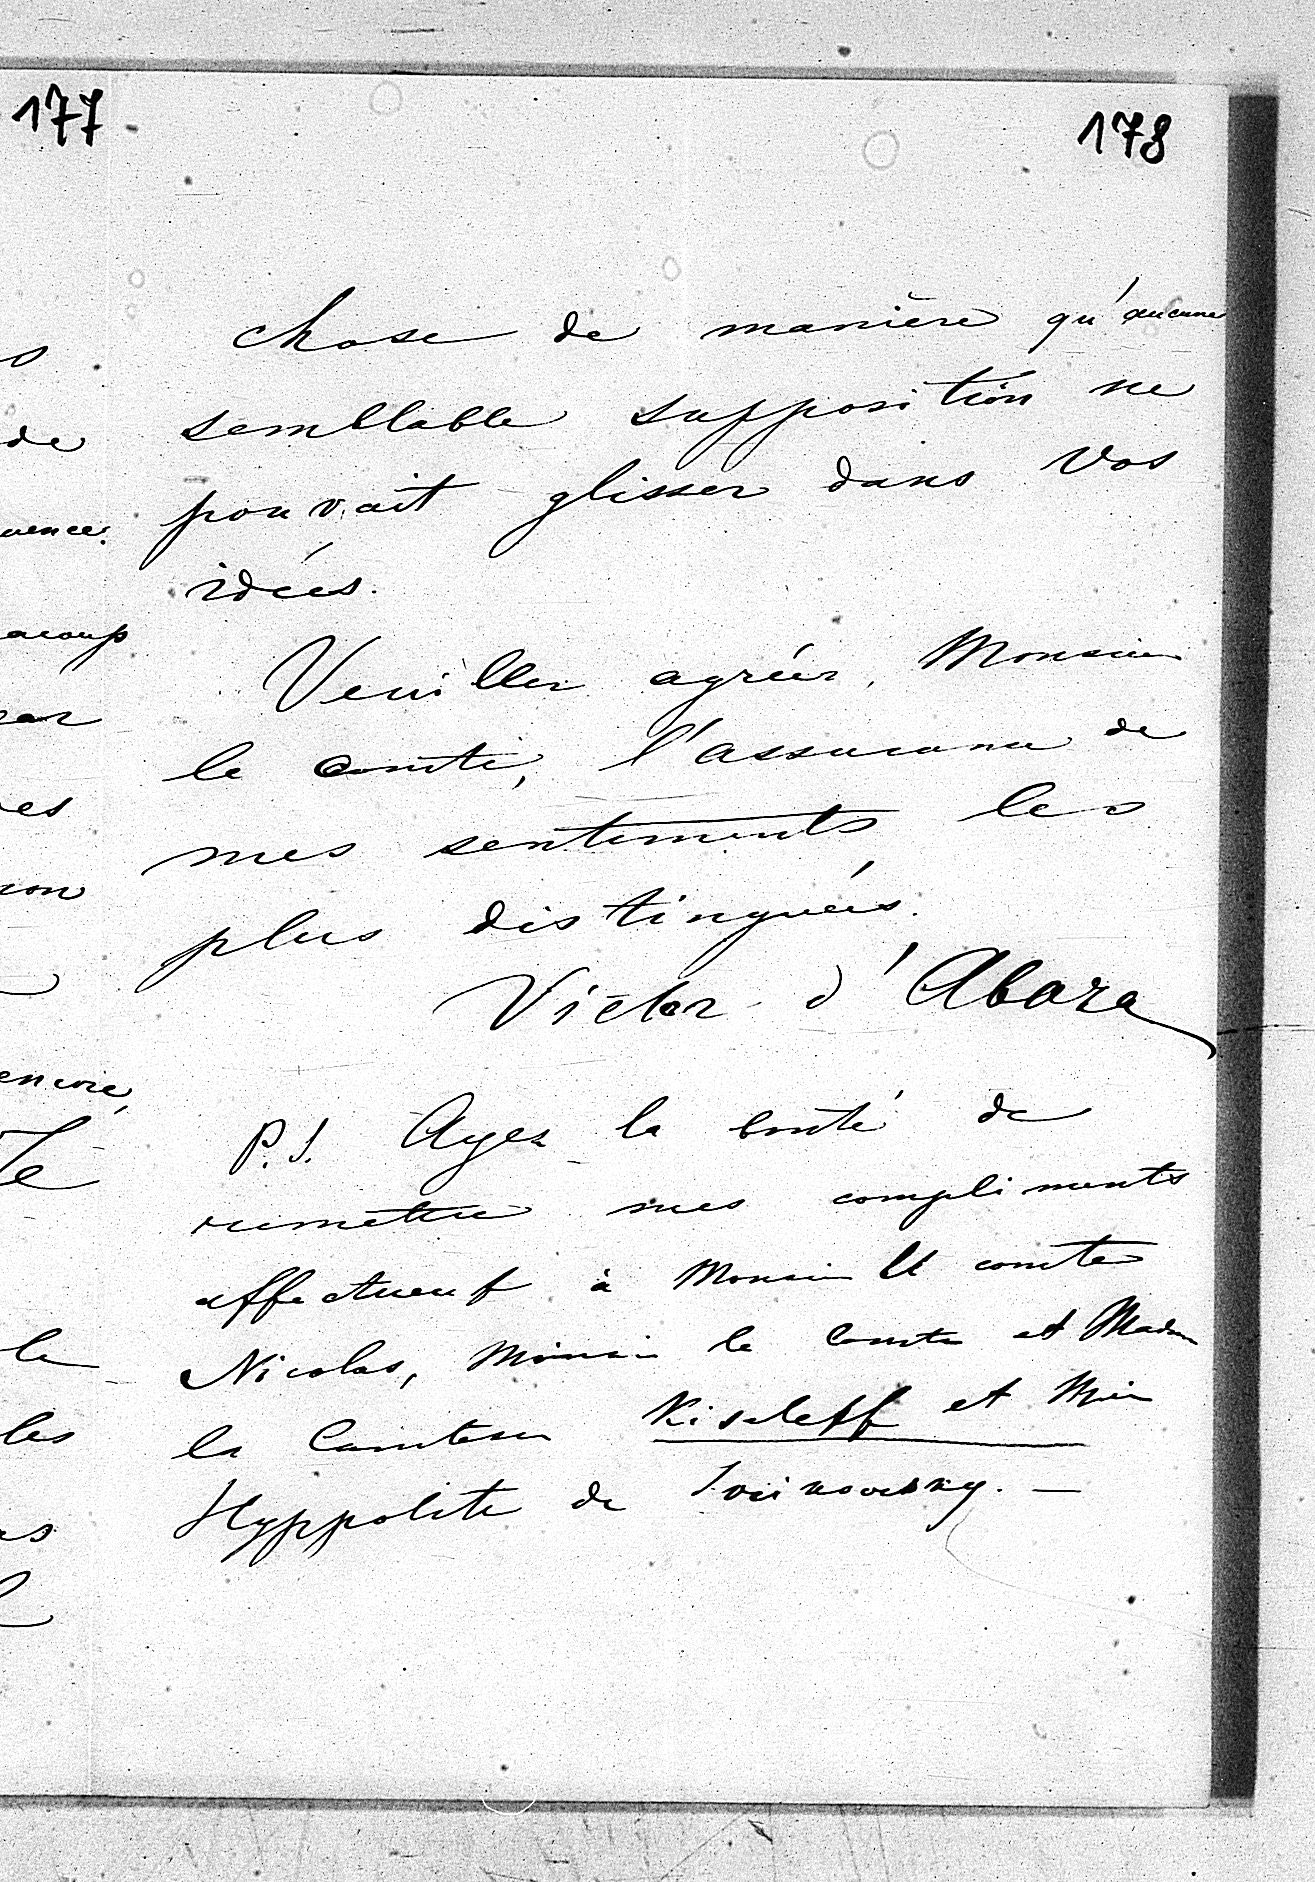 177
178
chose de manière qu'aucune
semblable supposition ne
pouvait glisser dans vos
idées.
Veuillez agréer, Monsieur
le comte, l'assurance de
mes sentiments les
plus distingués.
Victor d'Abaza
P.S. Ayez la bonté de
remettre mes compliments
affectueux à Monsieur le comte
Nicolas, Monsieur le Comte et Madame
la Comtesse Kiseleff et
Hyppolite de
de
encore,
Je
le
les